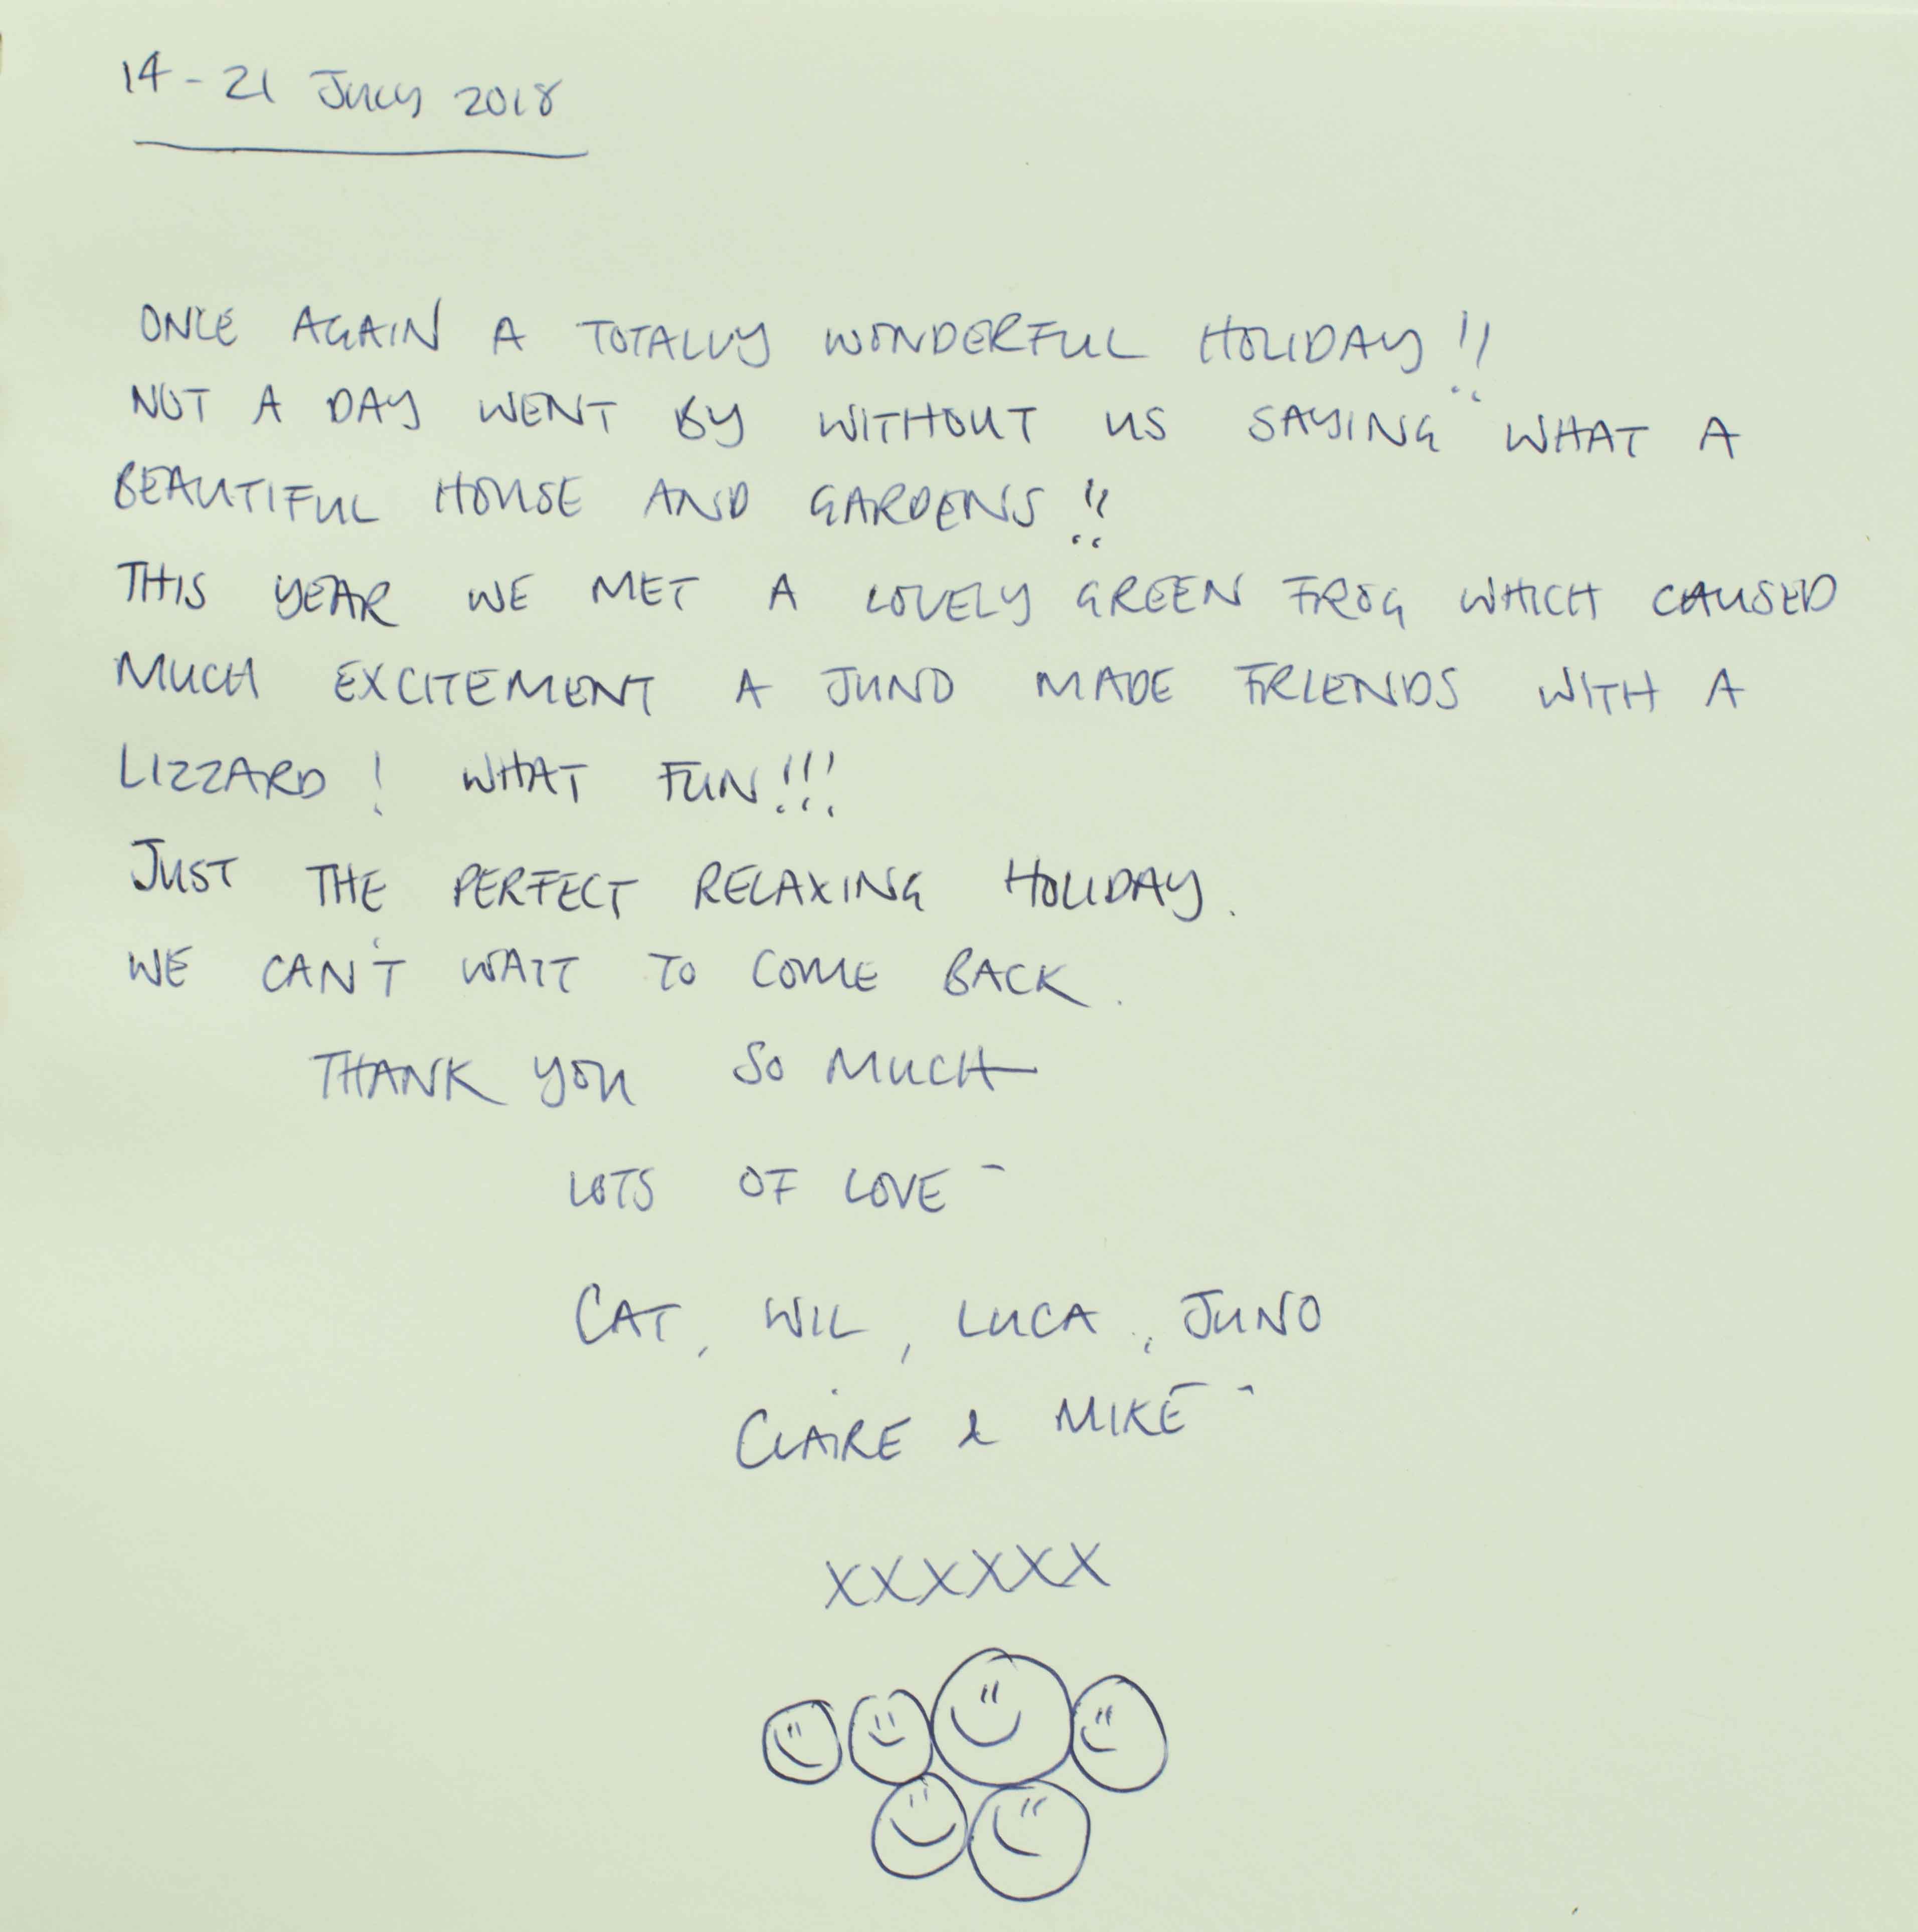 14 - 21 July 2018
ONCE AGAIN A TOTALLY WONDERFUL HOLIDAY!!
NOT A DAY WENT BY WITHOUT US SAYING WHAT A
BEAUTIFUL HOUSE AND GARDENS!!
THIS YEAR WE MET A LOVELY GREEN FROG WHICH CAUSED
MUCH EXCITEMENT A JUNO MADE FRIENDS WITH A
LIZZARD! WHAT FUN!!!
JUST THE PERFECT RELAXING HOLIDAY.
WE CAN'T WAIT TO COME BACK.
THANK YOU SO MUCH
LOTS OF LOVE -
CAT, WIL, LUCA, JUNO
CLAIRE & MIKE -
XXXXXX